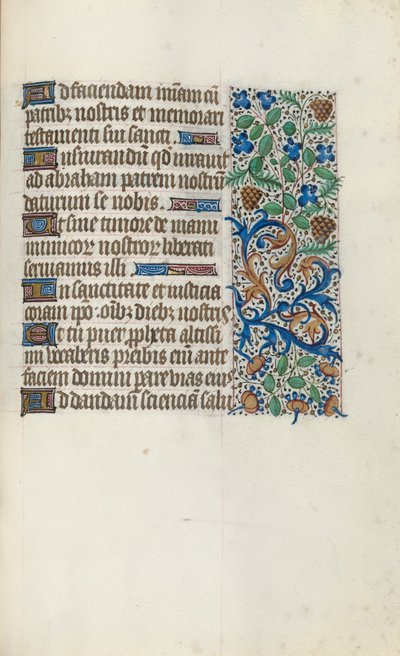 Ad faciendam miam cū
patribꝫ nostris et memorari
testamenti sui sancti.
Iusiurandū qd iurauit
ad abraham patrem nostrū
daturum se nobis.
Ut sine timore de manu
inimicoꝝ nostroꝝ liberati
seruiamus illi
In sanctitate et iusticia
coram ipō. omībꝫ diebꝫ nostris
Et tu puer ppheta altissi
mi uocaberis preibis enī ante
faciem domini parare vias eius
Ad dandam sciencia salu